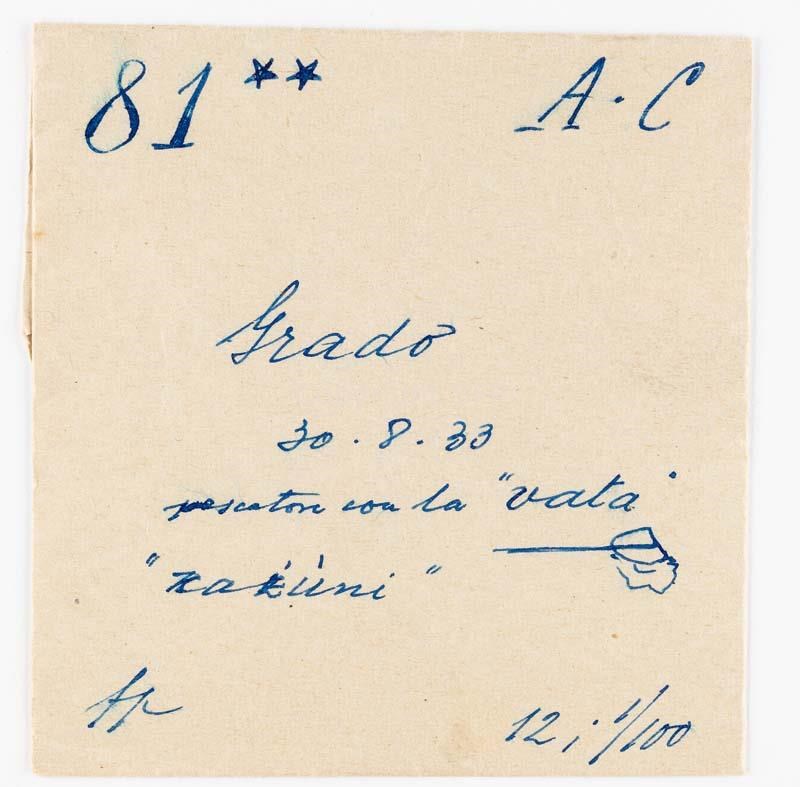 81 ** A·C
Grado
30.8.33
pescatori con la "vata"
"
12; 1/100